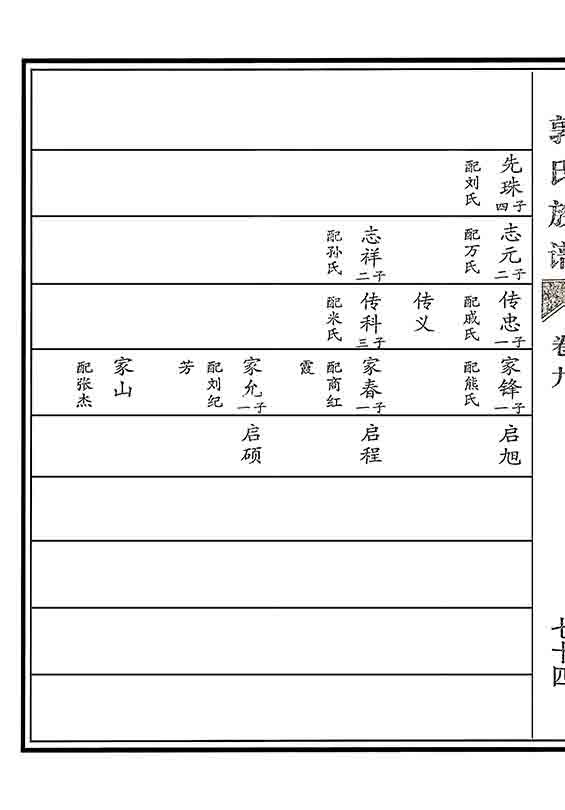 郭氏族谱
卷九
七十四
先珠
四子
配刘氏
志元
二子
配万氏
志祥
二子
配孙氏
传忠
一子
配戚氏
传义
传科
三子
配米氏
家锋
一子
配熊氏
家春
一子
配商红
霞
家允
一子
配刘纪
芳
家山
配张杰
启旭
启程
启硕